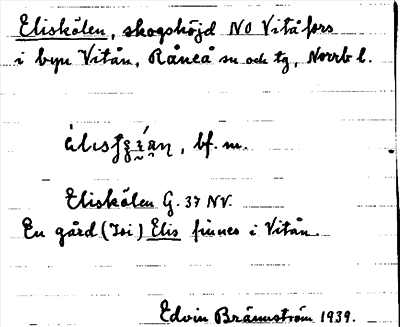 Eliskölen, skogshöjd NO Vitåfors
i byn Vitån, Råneå sn och tg, Norrb l.
, bf. m.
Eliskölen G. 37 NV.
En gård (Isi) Elis finnes i Vitån.
Edvin Brännström 1939.